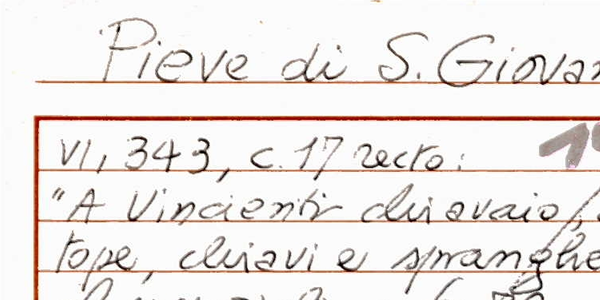 Pieve di S. Giovan
VI, 343, c. 17 recto:
"A Vincienti chiavaio,
tope, chiavi e spranghe